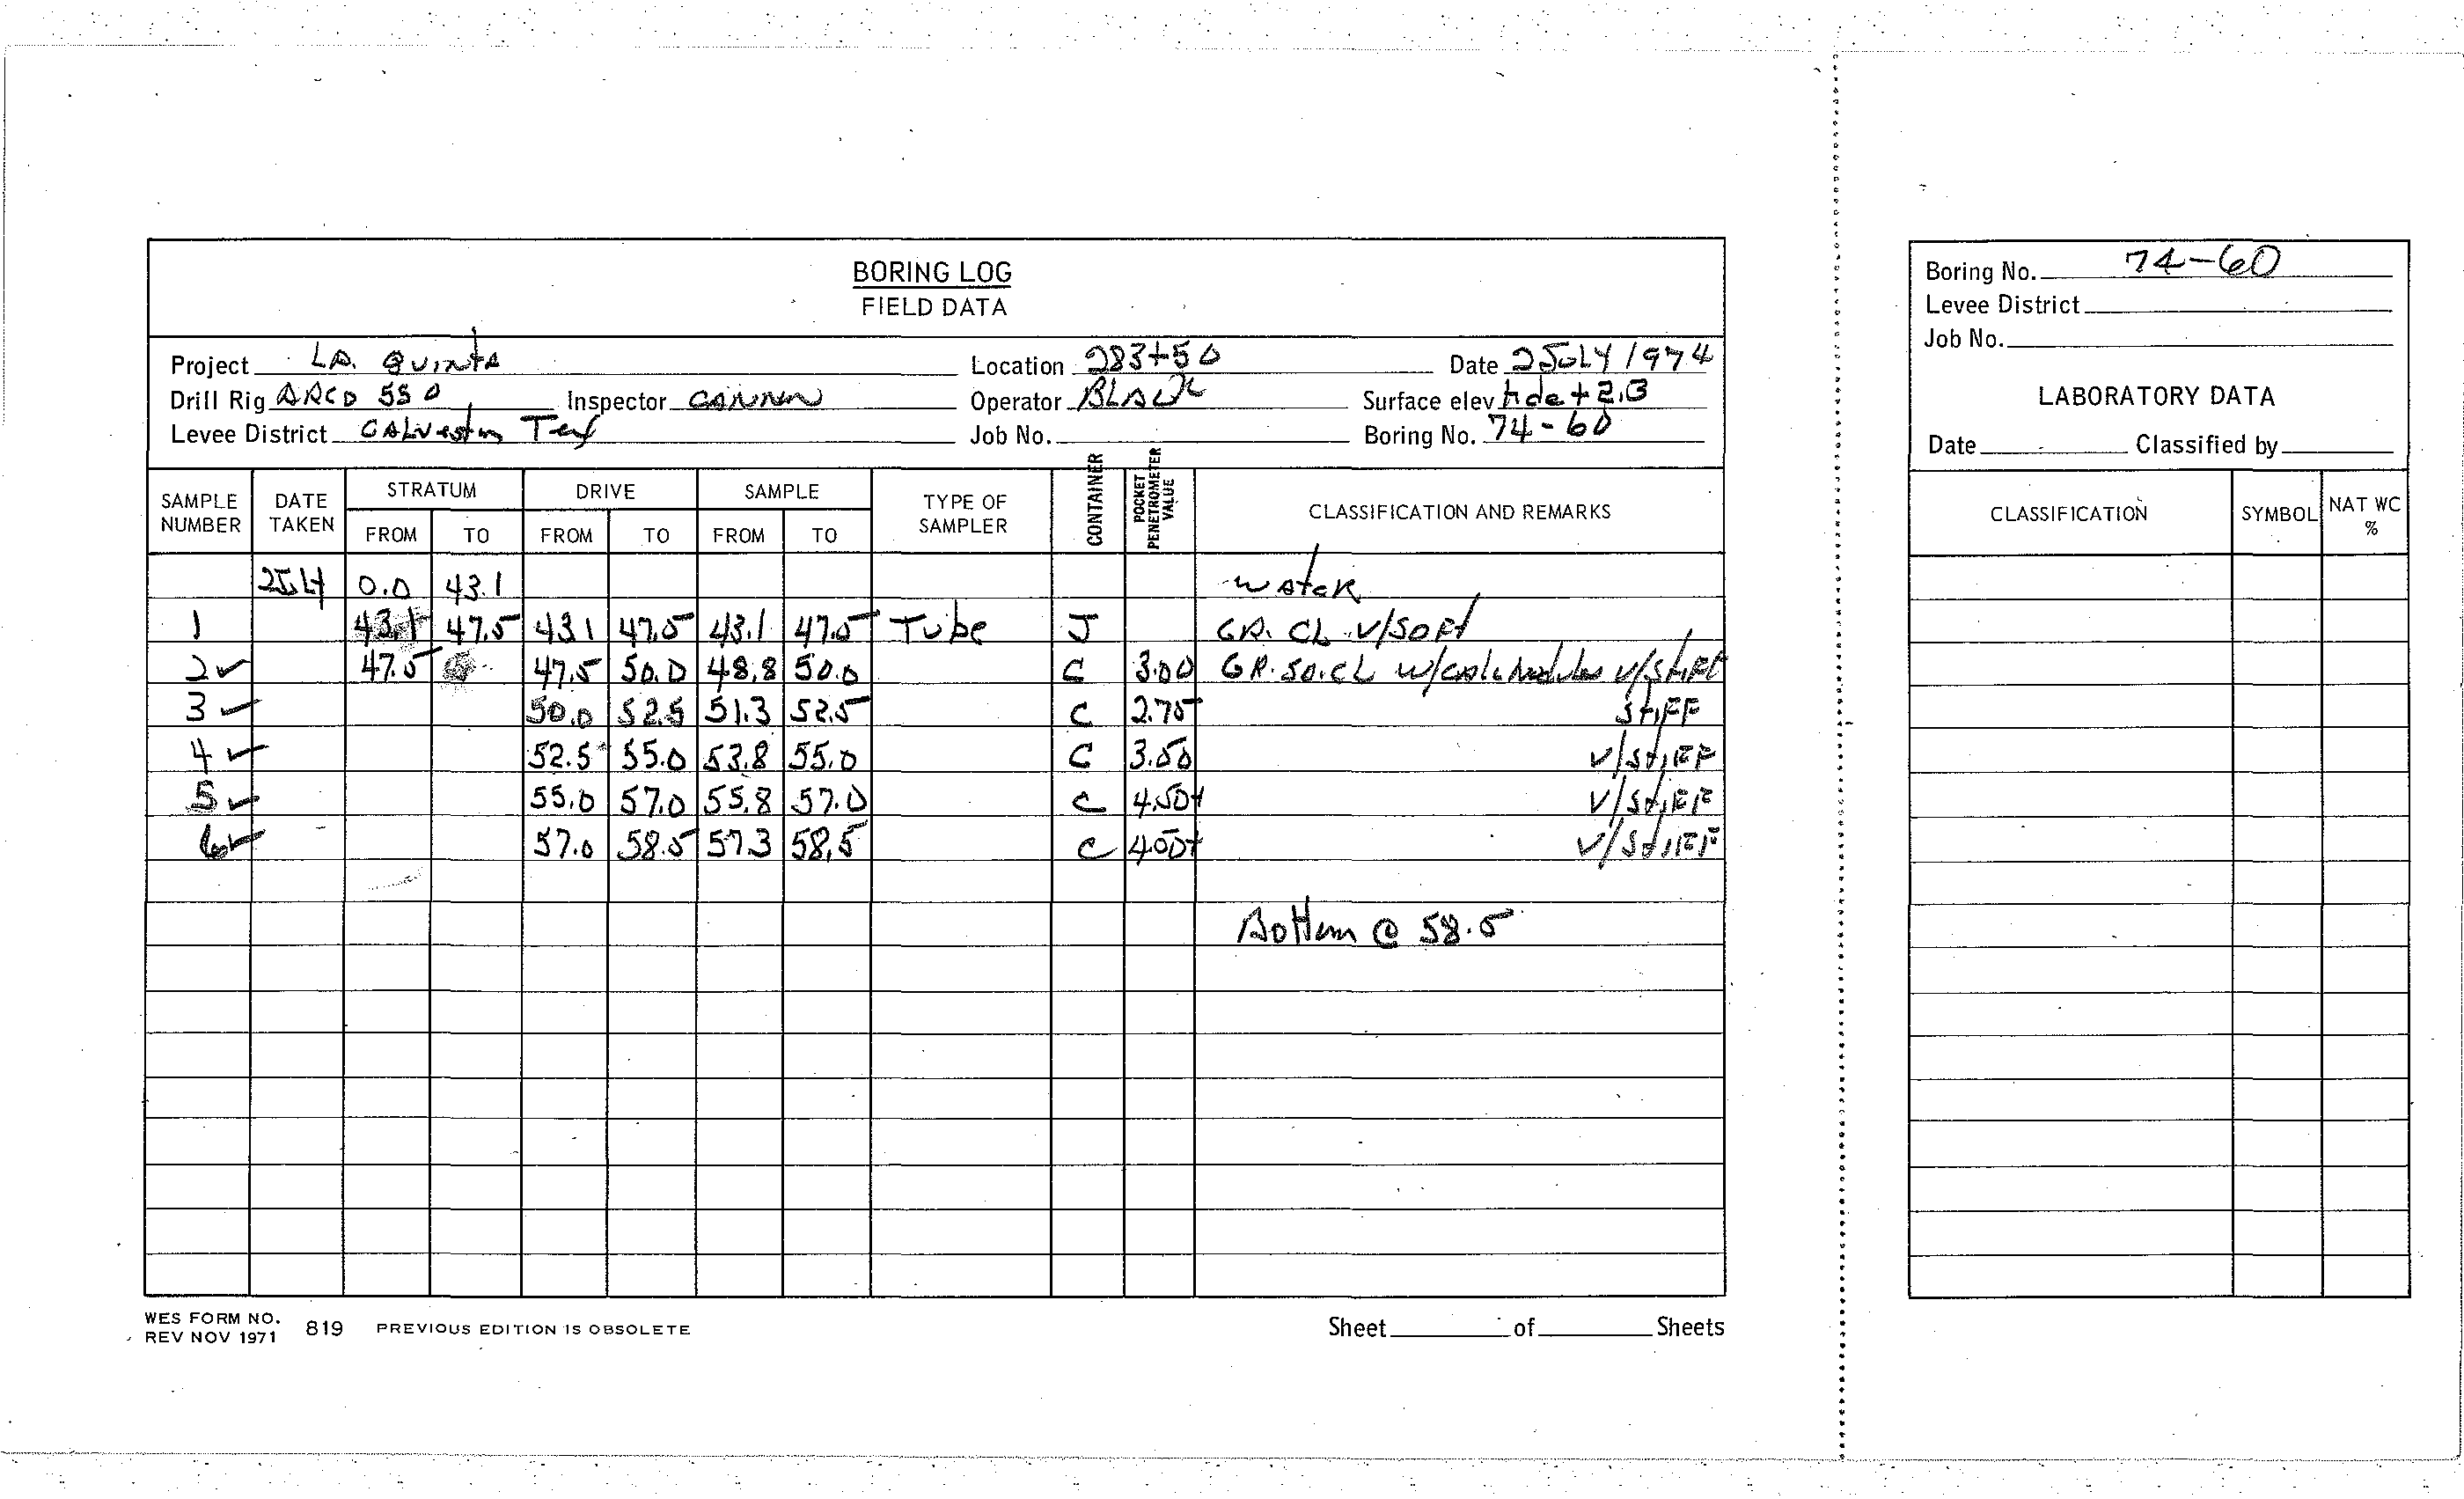 BORING LOG
FIELD DATA
Project LA. QUINTA Location 283+50 Date 2 JULY 1974
Drill Rig ARCO 550 Inspector CANNON Operator BLACK Surface elev tide + 2.3
Levee District GALVESTON Tex Job No. Boring No. 74-60
SAMPLE NUMBER DATE TAKEN STRATUM FROM TO DRIVE FROM TO SAMPLE FROM TO TYPE OF SAMPLER CONTAINER POCKET PENETROMETER VALUE CLASSIFICATION AND REMARKS
0.0 43.1 WATER
1 43.1 47.5 43.1 47.5 43.1 47.5 Tube J GR. CL V/SOFT
2✓ 47.5 47.5 50.0 48.8 50.0 C 3.00 GR. SA. CL w/calc Nodules V/STIFF
3✓ 50.0 52.5 51.3 52.5 C 2.75 STIFF
4✓ 52.5 55.0 53.8 55.0 C 3.50 V/STIFF
5✓ 55.0 57.0 55.8 57.0 C 4.50+ V/STIFF
6✓ 57.0 58.5 57.3 58.5 C 4.00+ V/STIFF
Bottom @ 58.5
WES FORM NO. 819 PREVIOUS EDITION IS OBSOLETE
REV NOV 1971
Sheet of Sheets
Boring No. 74-60
Levee District
Job No.
LABORATORY DATA
Date Classified by
CLASSIFICATION SYMBOL NAT WC %